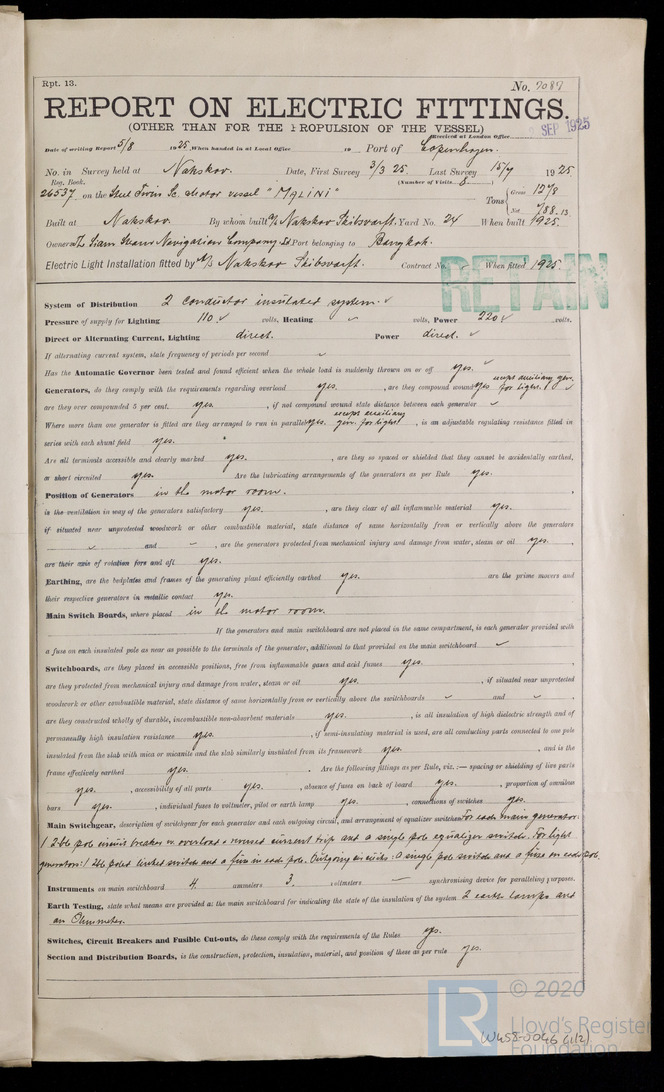 Rpt. 13.
No. 7087
REPORT ON ELECTRIC FITTINGS.
(OTHER THAN FOR THE PROPULSION OF THE VESSEL)
Received at London Office SEP 1925
Date of writing Report 5/8 1925. When handed in at Local Office 19 Port of Copenhagen.
No. in Survey held at Nakskov. Date, First Survey 3/3 25. Last Survey 15/7 1925.
Reg. Book. (Number of Visits 8.)
26537 on the Steel Twin Sc. Motor vessel "MALINI" Tons { Gross 1278
Net 788.13
Built at Nakskov. By whom built A/S Nakskov Skibsværft. Yard No. 24 When built 1925.
Owners The Siam Steam Navigation Company Ld Port belonging to Bangkok.
Electric Light Installation fitted by A/S Nakskov Skibsværft. Contract No. When fitted 1925.
RETAIN
System of Distribution 2 conductor insulated system. ✓
Pressure of supply for Lighting 110 ✓ volts, Heating ✓ volts, Power 220 ✓ volts.
Direct or Alternating Current, Lighting direct. Power direct. ✓
If alternating current system, state frequency of periods per second ✓
Has the Automatic Governor been tested and found efficient when the whole load is suddenly thrown on or off yes. ✓
Generators, do they comply with the requirements regarding overload yes. , are they compound wound yes except auxiliary gen. for light. ✓
are they over compounded 5 per cent. yes. , if not compound wound state distance between each generator ✓
Where more than one generator is fitted are they arranged to run in parallel yes. except auxiliary gen. for light , is an adjustable regulating resistance fitted in
series with each shunt field yes.
Are all terminals accessible and clearly marked yes. , are they so spaced or shielded that they cannot be accidentally earthed,
or short circuited yes. Are the lubricating arrangements of the generators as per Rule yes.
Position of Generators in the motor room.
is the ventilation in way of the generators satisfactory yes. , are they clear of all inflammable material yes.
if situated near unprotected woodwork or other combustible material, state distance of same horizontally from or vertically above the generators
✓ and ✓ , are the generators protected from mechanical injury and damage from water, steam or oil yes.
are their axis of rotation fore and aft yes.
Earthing, are the bedplates and frames of the generating plant efficiently earthed yes. are the prime movers and
their respective generators in metallic contact yes.
Main Switch Boards, where placed in the motor room.
If the generators and main switchboard are not placed in the same compartment, is each generator provided with
a fuse on each insulated pole as near as possible to the terminals of the generator, additional to that provided on the main switchboard ✓
Switchboards, are they placed in accessible positions, free from inflammable gases and acid fumes yes.
are they protected from mechanical injury and damage from water, steam or oil yes. , if situated near unprotected
woodwork or other combustible material, state distance of same horizontally from or vertically above the switchboards ✓ and ✓
are they constructed wholly of durable, incombustible non-absorbent materials yes. , is all insulation of high dielectric strength and of
permanently high insulation resistance yes. , if semi-insulating material is used, are all conducting parts connected to one pole
insulated from the slab with mica or micanite and the slab similarly insulated from its framework yes. , and is the
frame effectively earthed yes. Are the following fittings as per Rule, viz.:— spacing or shielding of live parts
yes. , accessibility of all parts yes. , absence of fuses on back of board yes. , proportion of omnibus
bars yes. , individual fuses to voltmeter, pilot or earth lamp yes. , connections of switches yes.
Main Switchgear, description of switchgear for each generator and each outgoing circuit, and arrangement of equalizer switches For each main generator:
1 2 pole circuit breaker w. overload & reversed current trip and a single pole equalizer switch. For light
generators: 1 2 poled linked switch and a fuse in each pole. Outgoing circuits: A single pole switch and a fuse on each pole.
Instruments on main switchboard 4. ammeters 3. voltmeters — synchronising device for paralleling purposes.
Earth Testing, state what means are provided at the main switchboard for indicating the state of the insulation of the system 2 earth lamps and
an Ohmmeter.
Switches, Circuit Breakers and Fusible Cut-outs, do these comply with the requirements of the Rules yes.
Section and Distribution Boards, is the construction, protection, insulation, material, and position of these as per rule yes.
LR © 2020
Lloyd's Register
Foundation
W458-0046 (1/2)